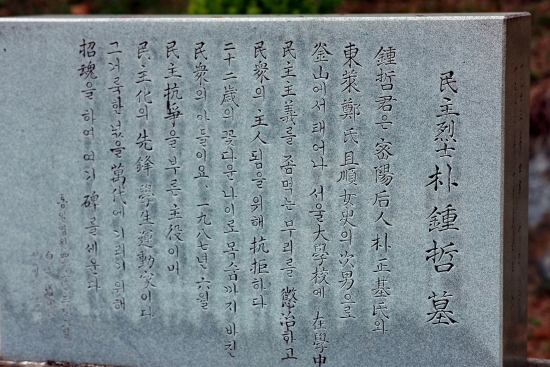 民主烈士 朴鍾哲 墓
鍾哲君은 密陽后人 朴正基氏와
東萊鄭氏且順女史의 次男으로
釜山에서 태어나 서울大學校에 在學中
民主主義를 좀먹는 무리를 懲治하고
民衆의 主人됨을 위해 抗拒하다
二十二歲의 꽃다운 나이로 목숨까지 바친
民衆의 아들이요、一九八七년 六월
民主抗爭을 부른 主役이며
民主化의 先鋒 學生運動家이다
그 거룩한 넋을 萬代에 기리기 위해
招魂을 하여 여기 碑를 세운다